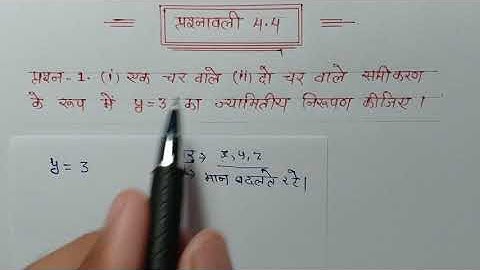 प्रश्नावली 4.4
प्रश्न-1. (i) एक चर वाले (ii) दो चर वाले समीकरण
के रूप में y=3 का ज्यामितीय निरूपण कीजिए।
y = 3
x, y, z
मान बदलते रहे।